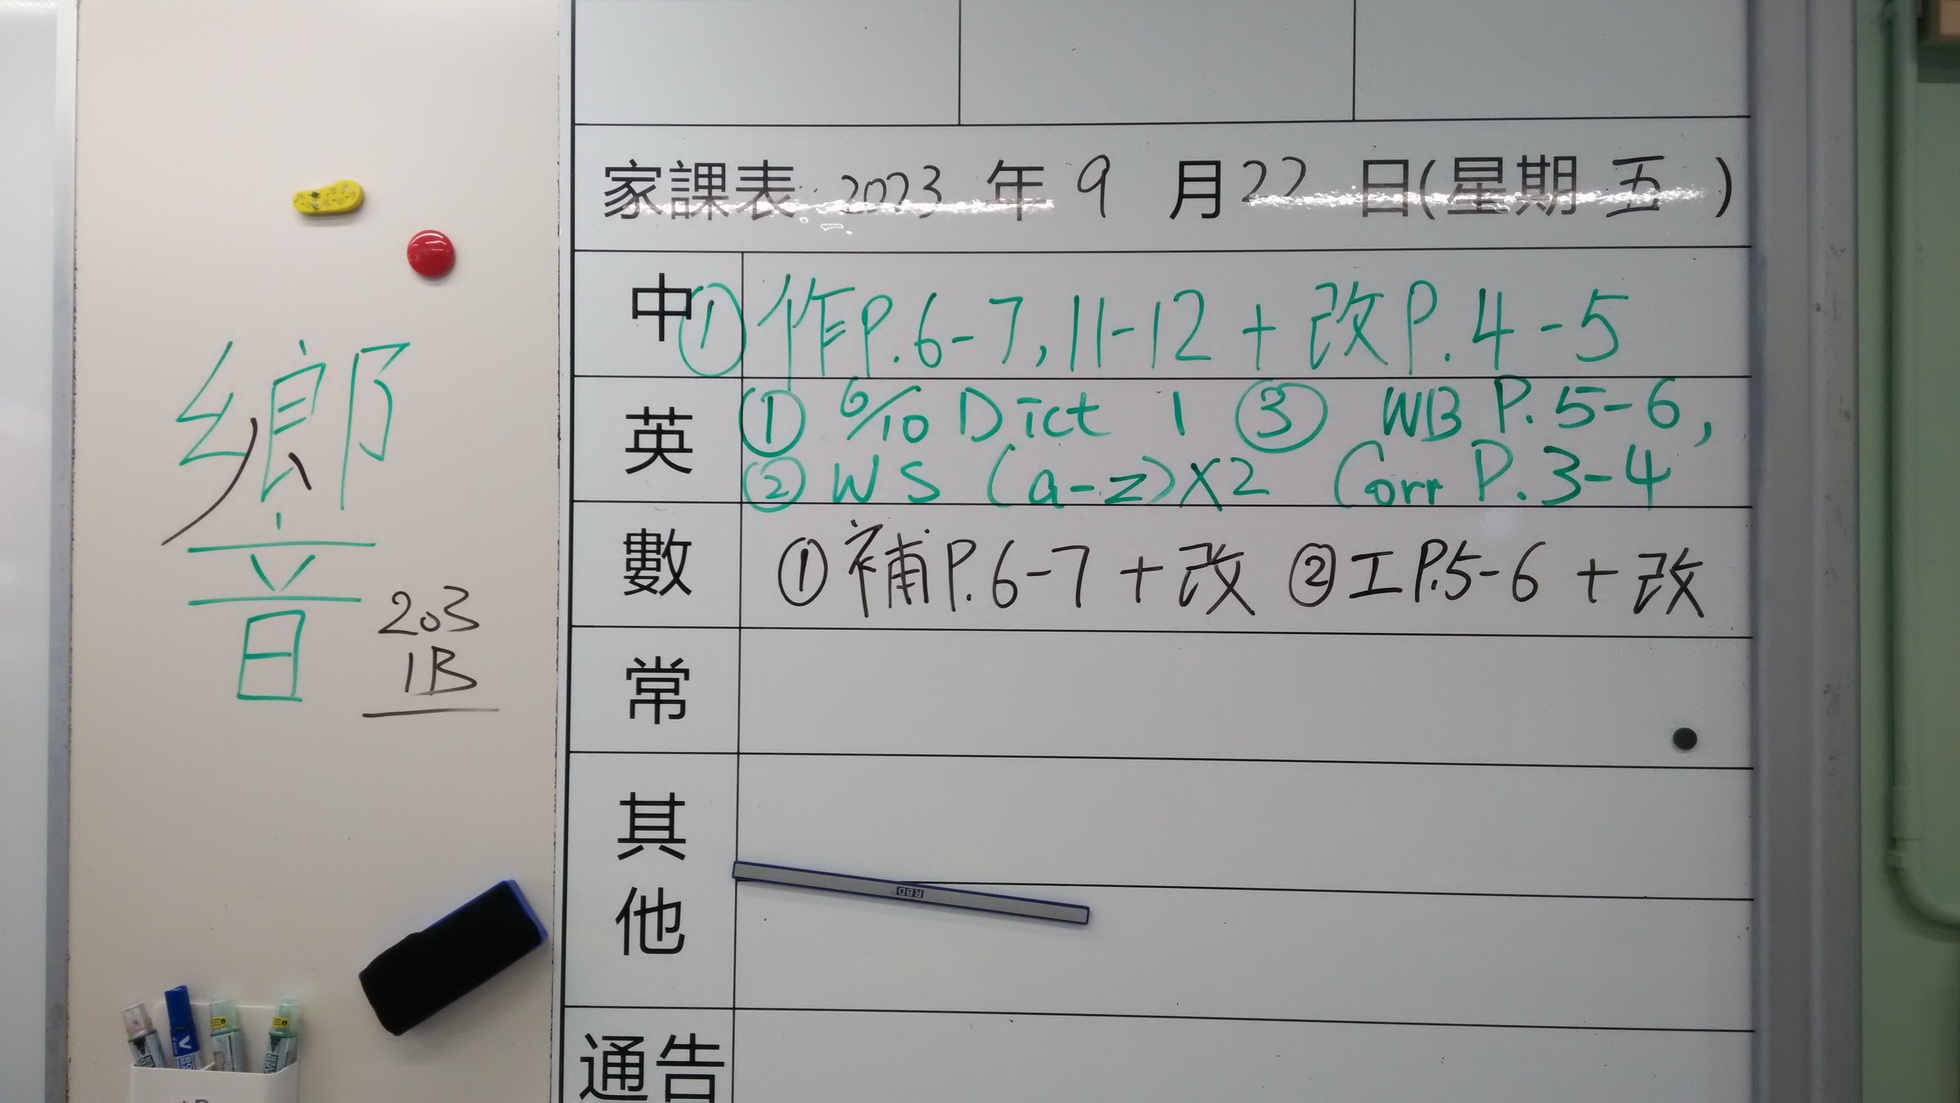 響
203
1B
家課表 2023 年 9 月 22 日(星期 五 )
中 ① 作P.6-7, 11-12 + 改P.4-5
英 ① 6/10 Dict 1 ③ WB P.5-6,
② WS (a-z)×2 Corr P.3-4
數 ① 補P.6-7 + 改 ② 工P.5-6 + 改
常
其
他
RBD
通告